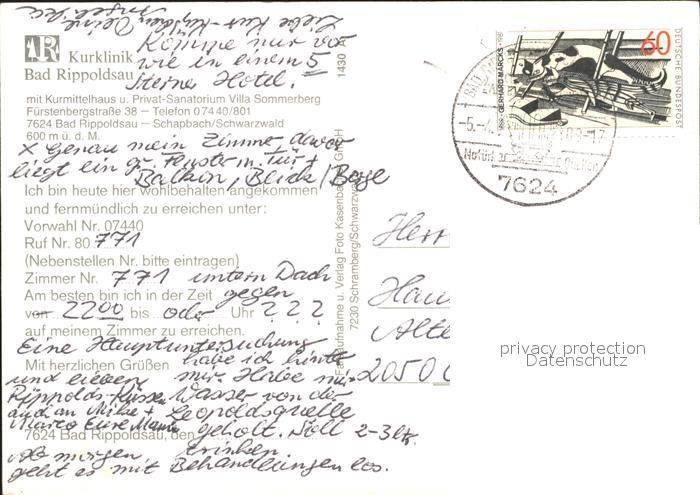 Liebe Kur- Deine
Komme mir vor
wie in einem 5
Sterne Hotel.
AR Kurklinik
Bad Rippoldsau
mit Kurmittelhaus u. Privat-Sanatorium Villa Sommerberg
Fürstenbergstraße 38 – Telefon 07440/801
7624 Bad Rippoldsau – Schapbach/Schwarzwald
600 m ü. d. M.
x Genau mein Zimmer, davor
liegt ein gr. Fenster m. Tür +
Balkon, Blick/Berge
Ich bin heute hier wohlbehalten angekommen
und fernmündlich zu erreichen unter:
Vorwahl Nr. 07440
Ruf Nr. 80 771
(Nebenstellen Nr. bitte eintragen)
Zimmer Nr. 771 unterm Dach
Am besten bin ich in der Zeit gegen
von 2200 bis oder Uhr ? ? ?
auf meinem Zimmer zu erreichen.
Eine Hauptuntersuchung
habe ich hinter
Mit herzlichen Grüßen
und lieben mir. Habe mir
Rippolds- Wasser von der
auch an + Leopoldsquelle
Marco Eure geholt. Soll 2-3 ltr.
7624 Bad Rippoldsau, den
trinken.
Ab morgen
geht es mit Behandlungen los.
1430 A
Farbaufnahme u. Verlag Foto Kasenba GmbH
7230 Schramberg/Schwarzwa
60
DEUTSCHE BUNDESPOST
GERHARD MARCKS
7624
Herr
Hau
Alte
2050
privacy protection
Datenschutz